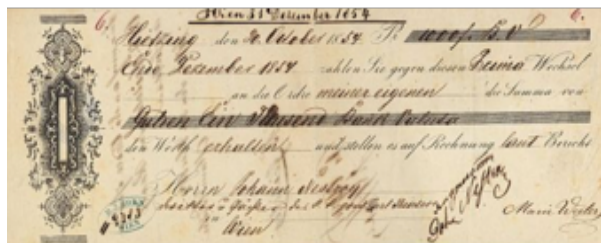 Wien 31 Dezember 1854
6. Hietzing den 20. October 1854 Pr 1000 f. B. V. 6.
Ende Dezember 1854 zahlen Sie gegen diesen Prima Wechsel
an die Ordre meiner eigenen die Summa von
Gulden Ein Tausend Bank Valuta
den Werth erhalten und stellen es auf Rechnung laut Bericht
Herrn Johann Nestroy
Direktor
Wien
angenommen
Marie Weiler